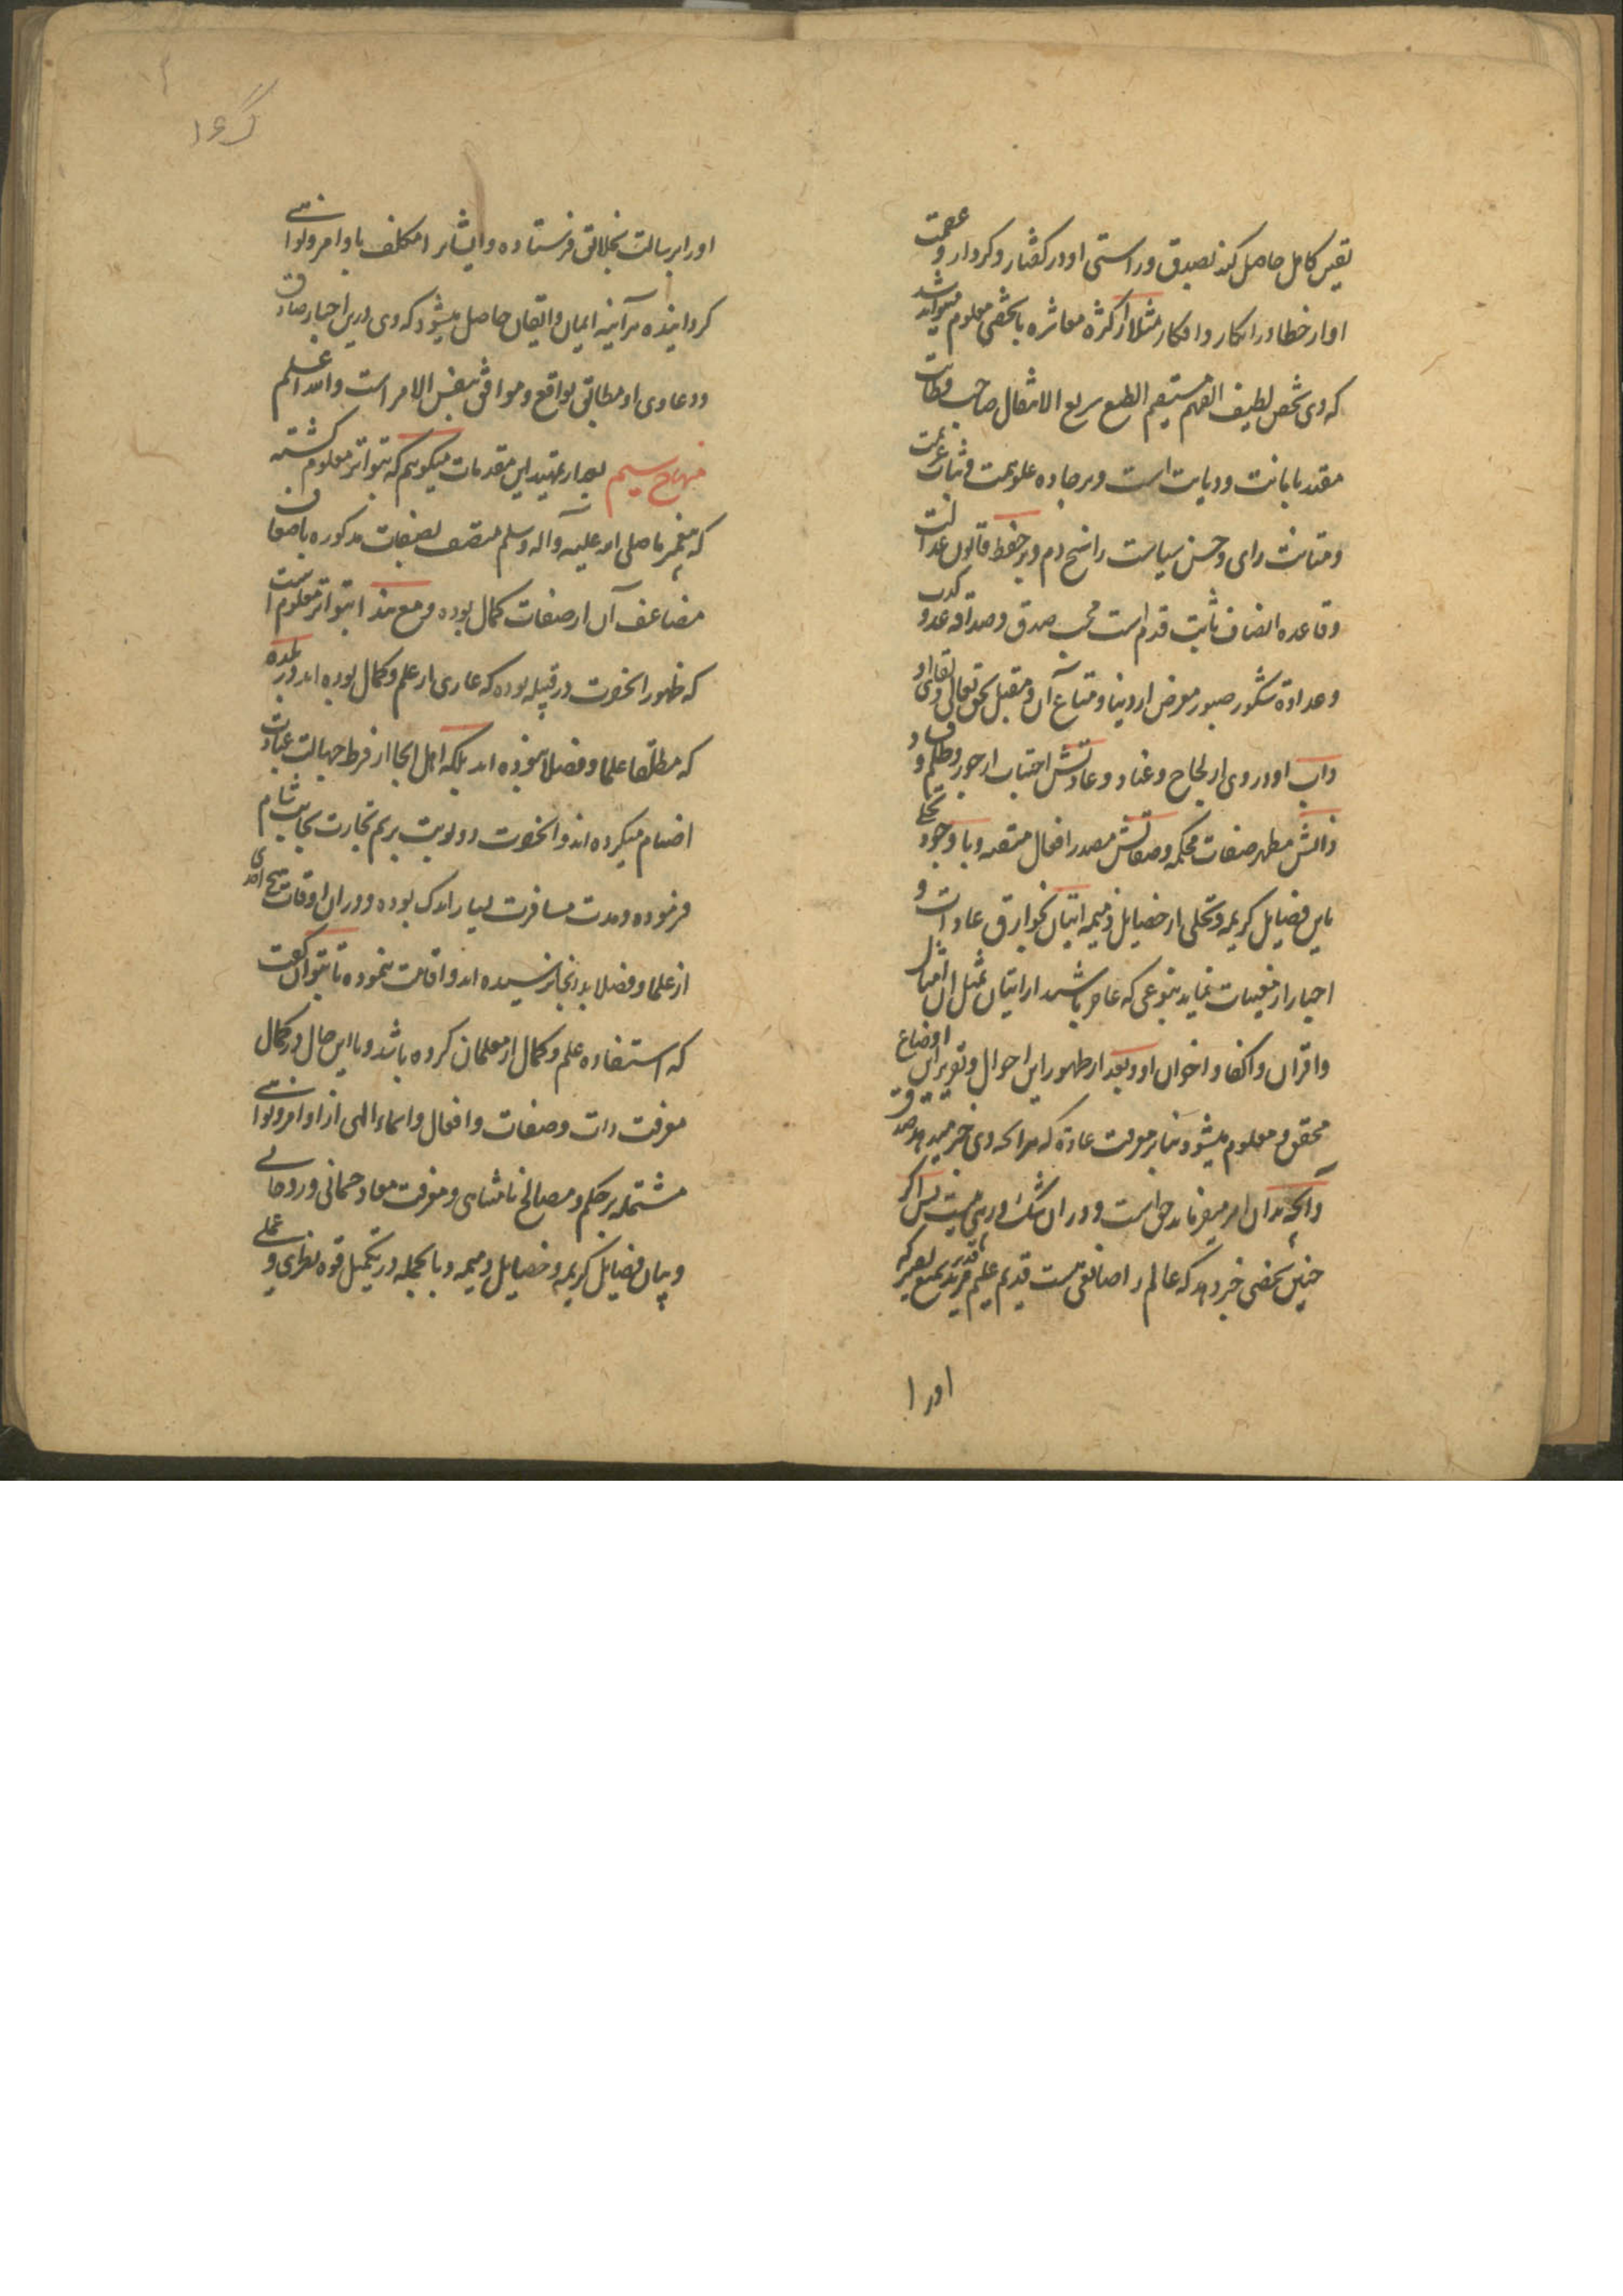 یقین کامل حاصل کند بصدق و راستی او در گفتار و کردار و عصمت
او از خطا در انکار و افکار مثلا از کثرة معاشره با شخصی معلوم میتواند شد
که وی شخص لطیف الفهم مستقیم الطبع سریع الانتقال صاحب فطانت
مقید بامانت و دیانت است و بر جاده علو همت و ثبات عزیمت
و متانت رای و حسن سیاست راسخ دم و بر حفظ قانون عدالت
و قاعده انصاف ثابت قدم است محب صدق و صداقه عدو کذب
و عداوة شکور صبور معرض از دنیا و متاع آن و مقبل بحق تعالی و لقای او
داب او دوری از لجاج و عناد و عادتش اجتناب از جور و ظلم و فساد
ذاتش مظهر صفات محکمه و صفاتش مصدر افعال متقنه و با وجود تحلی
باین فضایل کریمه و تخلی از خصایل ذمیمه اتیان بخوارق عادات و
اخبار از مغیبات نماید بنوعی که عاجز باشند از اتیان بمثل ان امثال
و اقران و اکفا و اخوان او و بعد از ظهور این احوال و تقریر این اوضاع
محقق و معلوم میشود بنابر معرفت عادة که هر انچه وی خبر میدهد صدق
و آنچه بدان امر میفرماید حق است و در ان شک و ریبی نیست پس اگر
چنین شخصی خبر دهد که عالم را صانعی هست قدیم علیم قدیر مرید سمیع بصیر که
اورا
اورا برسالت بخلایق فرستاده و ایشانرا مکلف باوامر و نواهی
گردانیده هرآینه ایمان و ایقان حاصل میشود که وی درین اخبار صادق
و دعاوی او مطابق بواقع و موافق بنفس الامر است والله اعلم
منهاج سیم بعد از تمهید این مقدمات میگوییم که بتواتر معلوم گشته
که پیغمبر ما صلی الله علیه وآله وسلم متصف بصفات مذکوره باضعاف
مضاعف آن از صفات کمال بوده و مع هذا بتواتر معلوم است
که ظهور انحضرت در قبیله بوده که عاری از علم و کمال بوده اند و در بلده
که مطلقا علما و فضلا نبوده اند بلکه اهل انجا از فرط جهالت عبادت
اصنام میکرده اند و انحضرت دو نوبت برسم تجارت بجانب شام
فرموده و مدت مسافرت بسیار اندک بوده و در ان اوقات هیچ احدی
از علما و فضلا بدانجا نرسیده اند و اقامت ننموده تا بتوان گفت
که استفاده علم و کمال از معلمان کرده باشد و با این حال در کمال
معرفت ذات و صفات و افعال و اسماء الهی از اوامر و نواهی
مشتمله بر حکم و مصالح نامتناهی و معرفت معاد جسمانی و روحانی
و بیان فضایل کریمه و خصایل ذمیمه و بالجمله در تکمیل قوه نظری و عملی